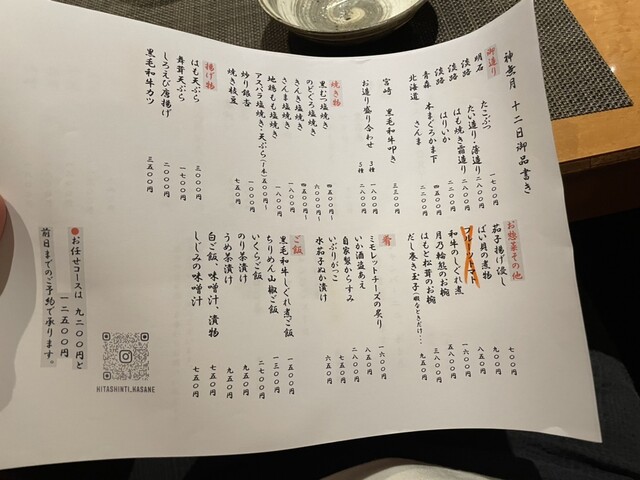 神無月 十二日御品書き
御造り
明石 たこぶつ 一七〇〇円
淡路 たい造り・薄造り 二八〇〇円
淡路 はも焼き霜造り 二八〇〇円
淡路 はりいか
青森 本まぐろかま下 四五〇〇円
北海道 さんま 二二〇〇円
宮崎 黒毛和牛叩き 三三〇〇円
お造り盛り合わせ 3種 一八〇〇円
5種 二八〇〇円
焼き物
黒むつ塩焼き
のどぐろ塩焼き
きんき塩焼き 六〇〇〇円
さんま塩焼き 一八〇〇円
地鶏もも塩焼き 一八〇〇円
アスパラ塩焼き・天ぷら(一本)
炒り銀杏
焼き枝豆 七五〇円
揚げ物
はも天ぷら 三〇〇〇円
舞茸天ぷら 一七〇〇円
しろえび唐揚げ 二〇〇〇円
黒毛和牛カツ 三五〇〇円
お惣菜その他
茄子揚げ浸し 七〇〇円
ばい貝の煮物 九五〇円
フルーツトマト 八五〇円
和牛のしぐれ煮 一六〇〇円
月乃輪熊のお椀 五八〇〇円
はもと松茸のお椀 三八〇〇円
だし巻き玉子(暇なときだけ…) 九五〇円
肴
ミモレットチーズの炙り 一六〇〇円
いか酒盗あえ 八五〇円
自家製からすみ 二八〇〇円
いぶりがっこ 七五〇円
水茄子ぬか漬け 六五〇円
ご飯
黒毛和牛しぐれ煮ご飯 一五〇〇円
ちりめん山椒ご飯 一三〇〇円
いくらご飯 二七〇〇円
のり茶漬け 九五〇円
うめ茶漬け 九五〇円
白ご飯、味噌汁、漬物 七五〇円
しじみの味噌汁 七五〇円
●お任せコースは 九二〇〇円と
一二五〇〇円
前日までのご予約で承ります。
HITASHINTI.HASANE